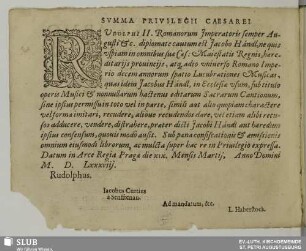 SVMMA PRIVILEGII CAESAREI.
RVdolphi II. Romanorum Imperatoris semper Au-
gusti &c. diplomate cautum est Jacobo Händl, ne quis
uspiam in omnibus suæ Cæs. Maiestatis Regnis, hære-
ditarijs provincijs, atq; adeo universo Romano Impe-
rio decem annorum spatio Lucubrationes Musicas,
quas idem Jacobus Händl, in Ecclesiæ usum, sub titulo
operis Musici & nonnullarum hactenus editarum Sacrarum Cantionum,
sine ipsius permissu in toto vel in parte, simili aut alio quopiam charactere
vel forma imitari, recudere, alijsve recudendas dare, vel etiam alibi recu-
sas adducere, vendere, distrahere, præter dicti Jacobi Händl aut hæredum
ipsius consensum, quovis modo ausit. Sub pœna confiscationis & amissionis
omnium eiusmodi librorum, ac mulcta super hac re in Privilegio expressa.
Datum in Arce Regia Praga die XIX. Mensis Martij, Anno Domini
M. D. LXXXVIII.
Rudolphus.
Iacobus Curtius
à Senftenau.
Ad mandatum, &c.
I. Haberstock.
SLUB
Wir führen Wissen.
EV.-LUTH. KIRCHGEMEINDE
ST. PETRI AUGUSTUSBURG